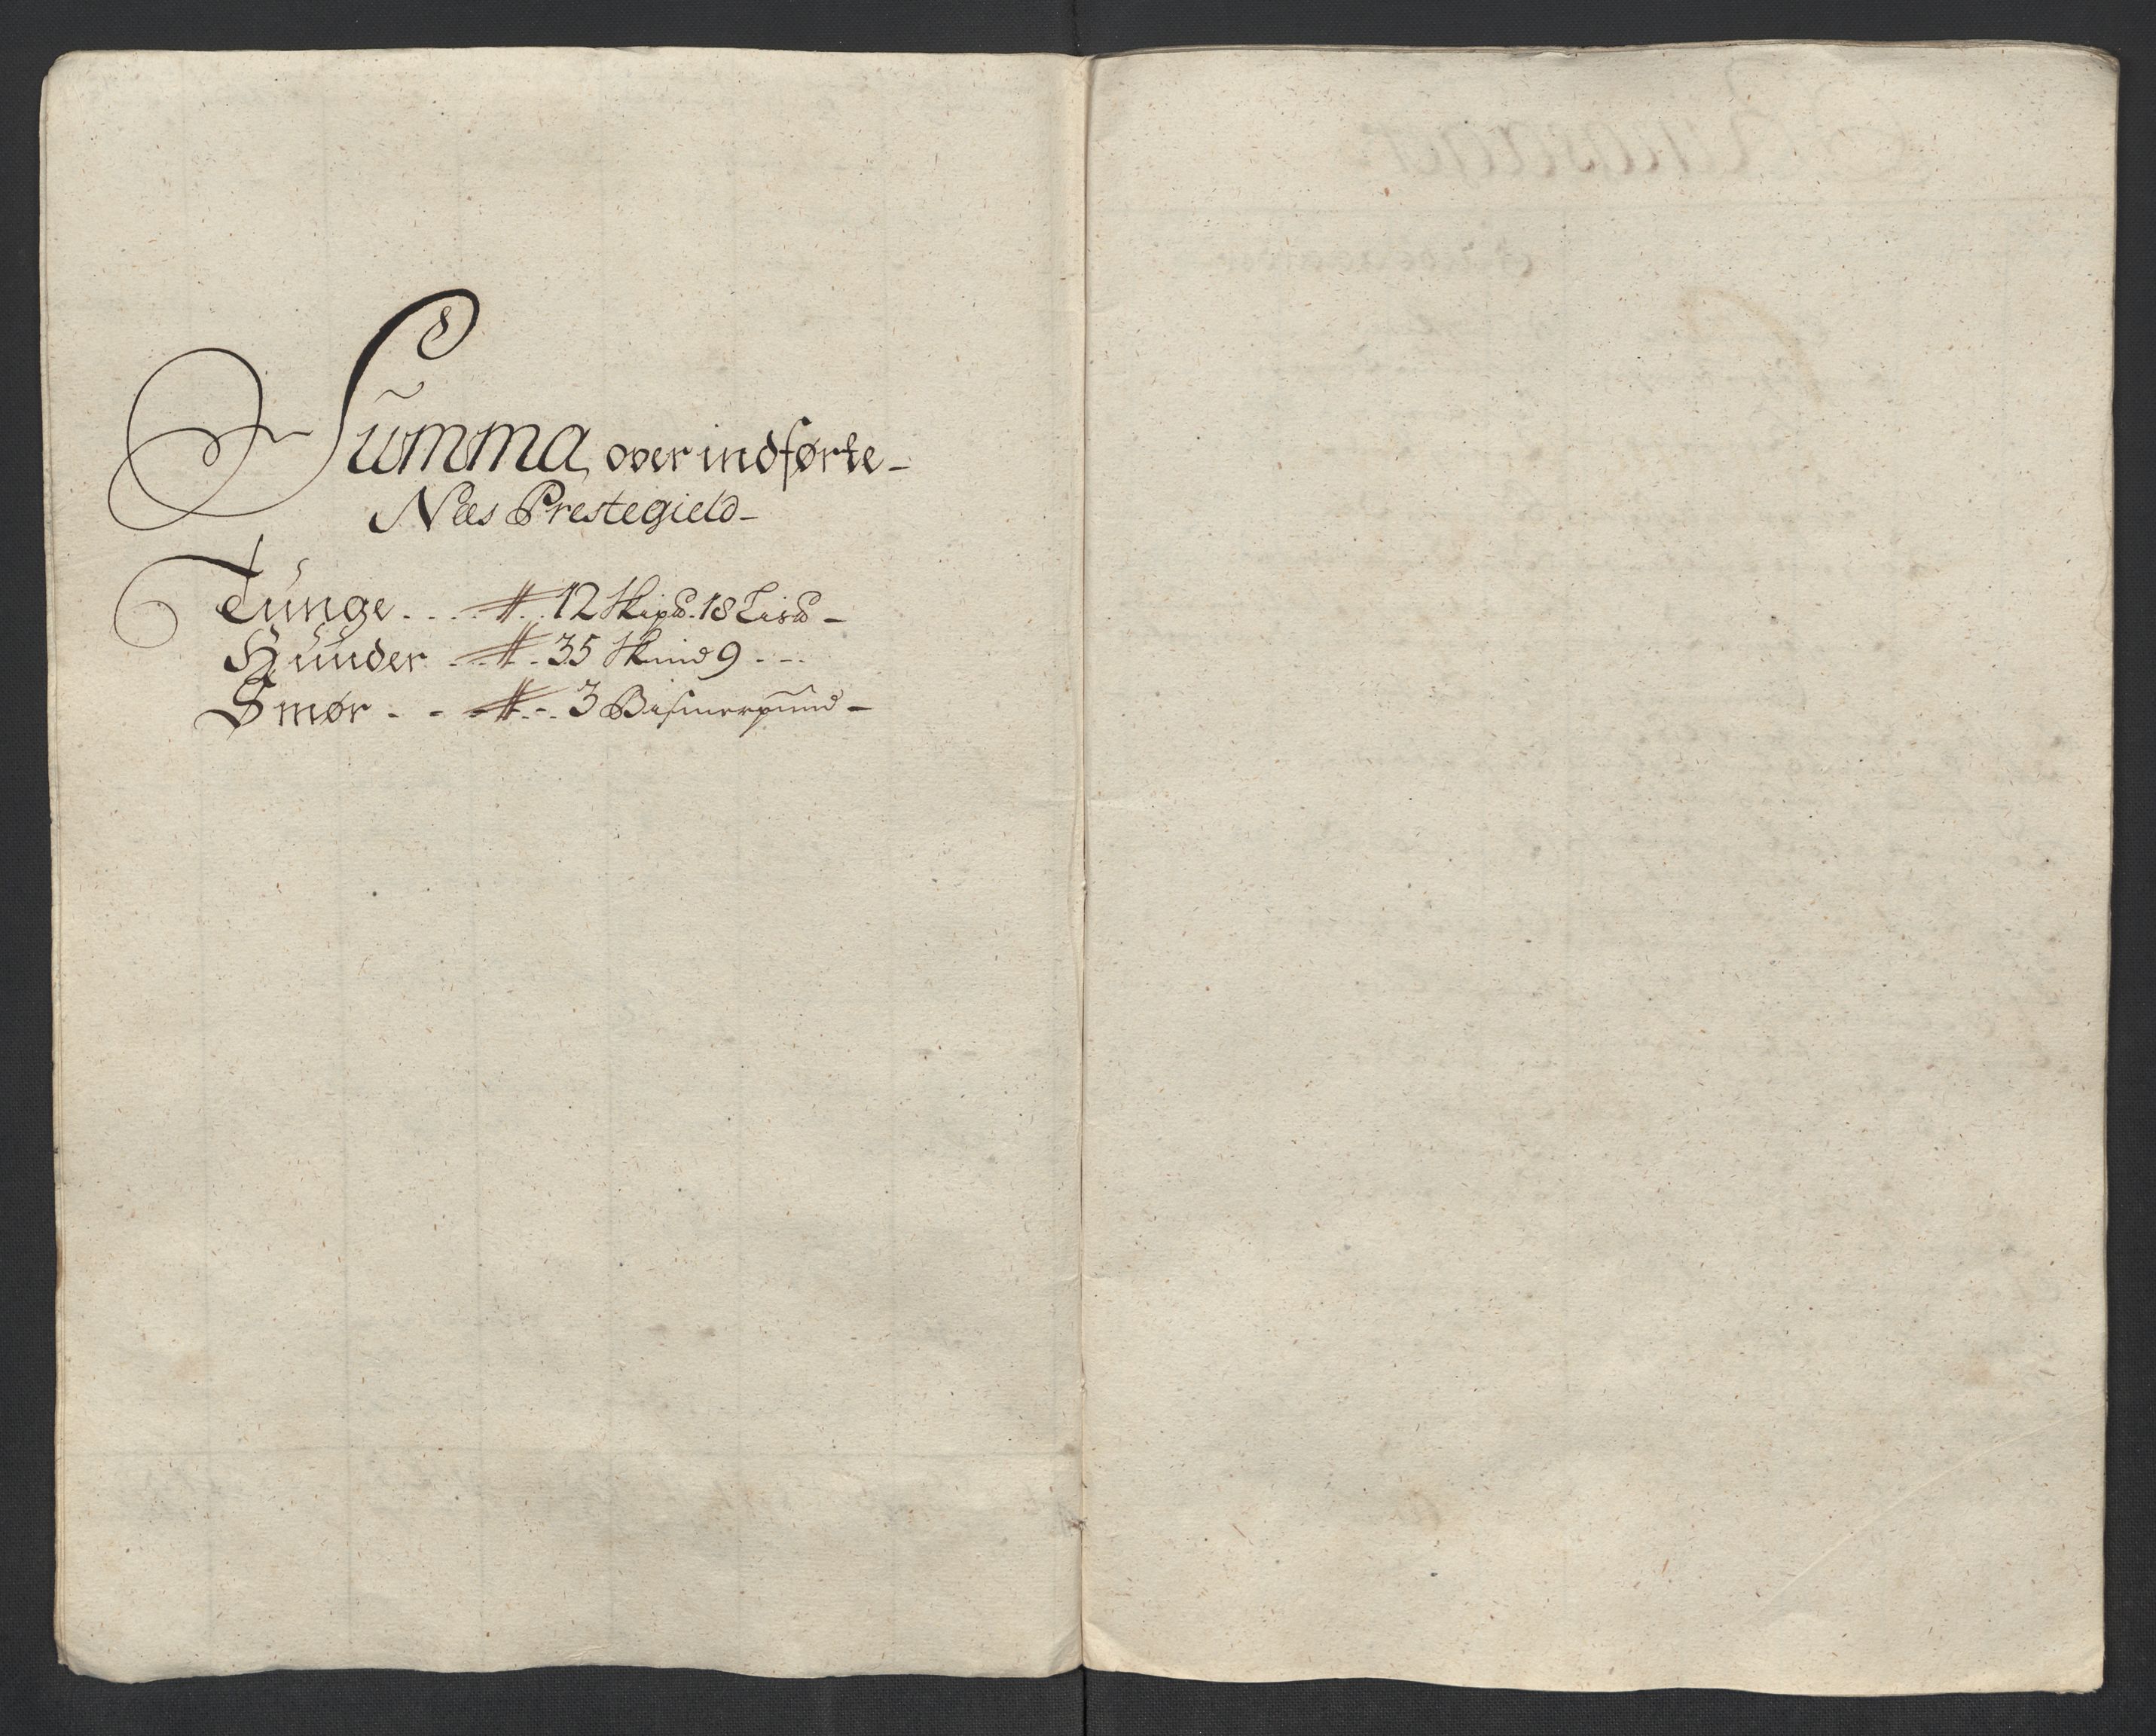 Summa over indførte-
Næs Prestegield-
Tunge. . . . # . 12 Skip℔. 18 Lis℔ -
Huuder . . # . 35 Skind 9 . - -
Smør - - - # - . 3 Bismerpund -